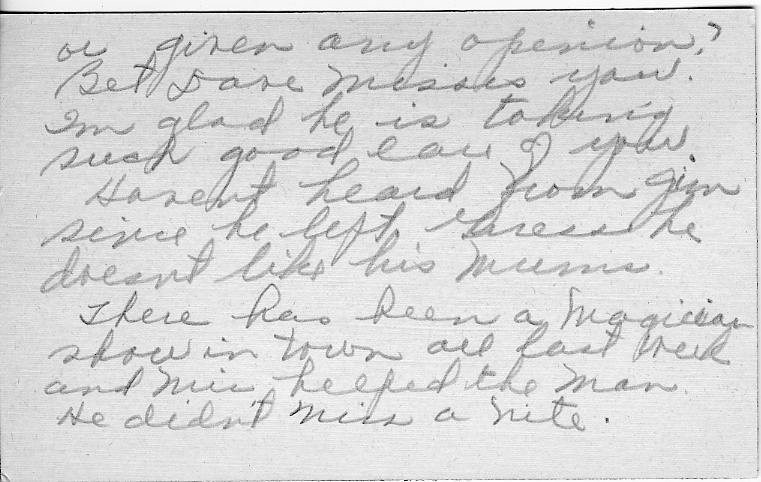 or given any openion?
Bet Dave Misses you.
Im glad he is taking
such good care of you
Havent heard from Jim
since he left, Guess he
doesnt like his Mums.
There has been a Magician
show in town all last week
and Mic helped the Man.
He didn't Miss a Nite.